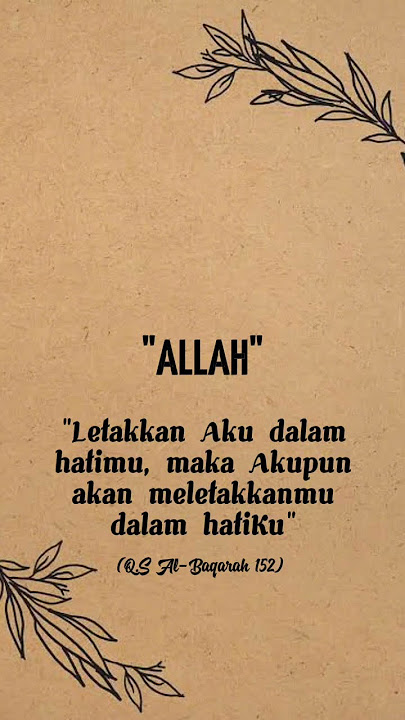 "ALLAH"
"Letakkan Aku dalam
hatimu, maka Akupun
akan meletakkanmu
dalam hatiKu"
(Q.S Al-Baqarah 152)